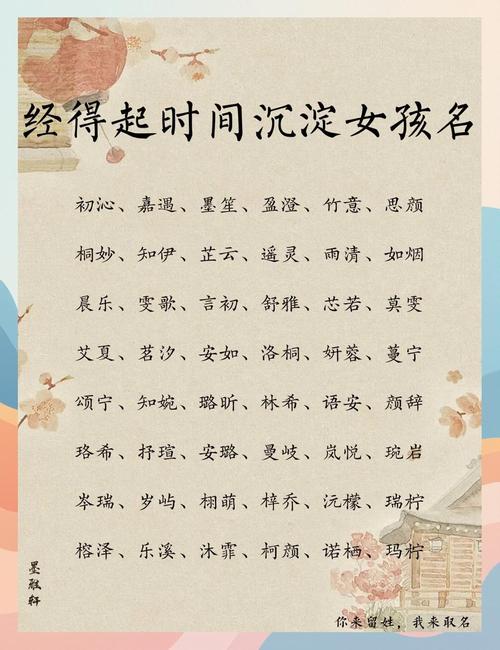 经得起时间沉淀女孩名
初沁、嘉遇、墨笙、盈澄、竹意、思颜
桐妙、知伊、芷云、遥灵、雨清、如烟
晨乐、雯歌、言初、舒雅、芯若、莫雯
艾夏、茗汐、安如、洛桐、妍蓉、蔓宁
颂宁、知婉、璐昕、林希、语安、颜辞
珞希、抒瑄、安璐、曼岐、岚悦、琬岩
岑瑞、岁屿、栩萌、梓乔、沅檬、瑞柠
榕泽、乐溪、沐霏、柯颜、诺栖、玛柠
墨融轩
你来留姓，我来取名